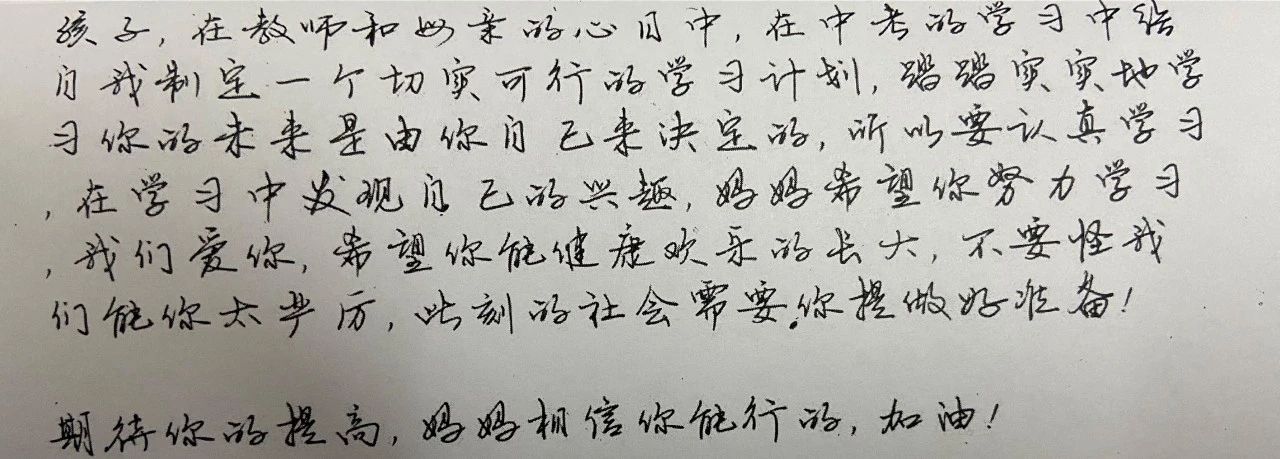 孩子,在教师和母亲的心目中,在中考的学习中给
自我制定一个切实可行的学习计划,踏踏实实地学
习你的未来是由你自己来决定的,所以要认真学习
,在学习中发现自己的兴趣,妈妈希望你努力学习
,我们爱你,希望你能健康欢乐的长大,不要怪我
们能你太严厉,此刻的社会需要你提做好准备!
期待你的提高,妈妈相信你能行的,加油!